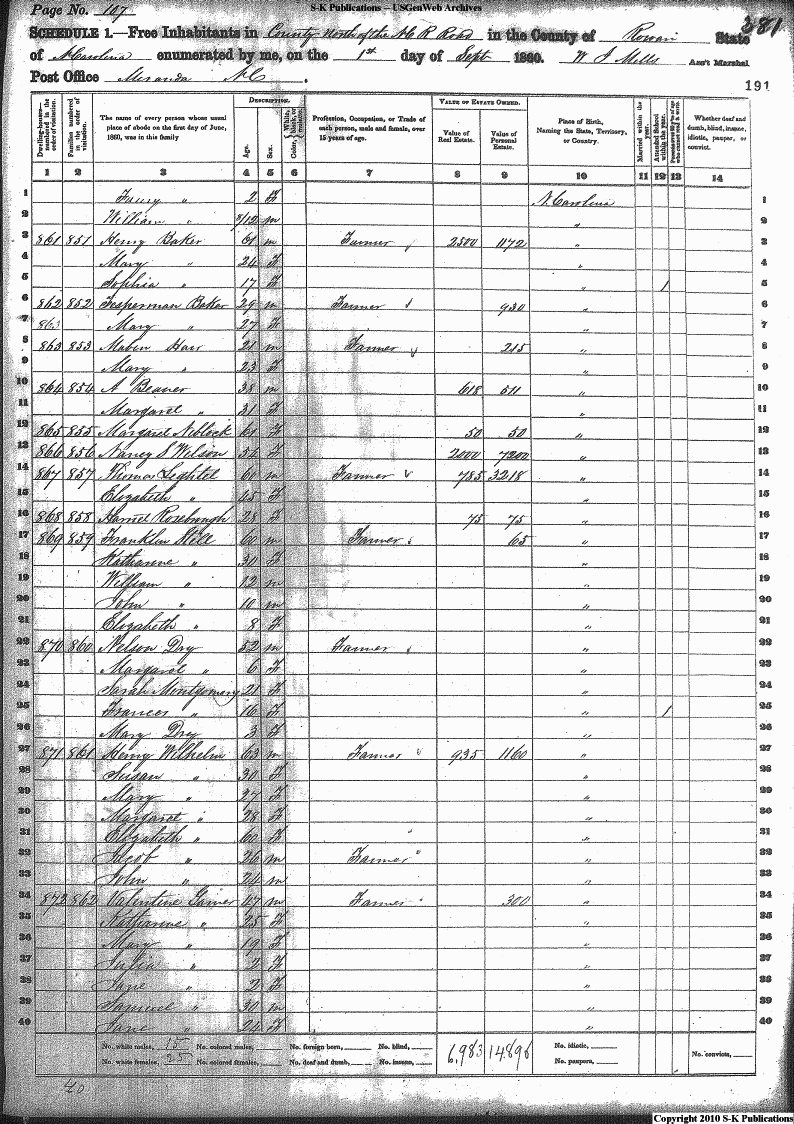 S-K Publications – USGenWeb Archives
Page No. 107
381
SCHEDULE 1.—Free Inhabitants in County North of the N C R Road in the County of Rowan State
of N Carolina enumerated by me, on the 1st day of Sept 1860. W J Mills Ass't Marshal.
Post Office Miranda N C.
191
Dwelling-houses—numbered in the order of visitation.
Families numbered in the order of visitation.
The name of every person whose usual place of abode on the first day of June, 1860, was in this family
DESCRIPTION.
Age.
Sex.
Profession, Occupation, or Trade of each person, male and female, over 15 years of age.
VALUE OF ESTATE OWNED.
Value of Real Estate.
Value of Personal Estate.
Place of Birth, Naming the State, Territory, or Country.
Married within the year.
Attended School within the year.
Whether deaf and dumb, blind, insane, idiotic, pauper, or convict.
1 2 3 4 5 6 7 8 9 10 11 12 13 14
1 Fanny " 2 F N. Carolina 1
2 William " /12 m " 2
3 861 851 Henry Baker 61 m Farmer 2500 1172 " 3
4 Mary " 24 F " 4
5 Sophia " 17 F " 1 5
6 862 852 Baker 29 m Farmer 930 " 6
7 863 Mary " 27 F " 7
8 863 853 21 m Farmer 215 " 8
9 Mary " 23 F " 9
10 864 854 A Beaver 38 m 618 511 " 10
11 Margaret " 31 F " 11
12 865 855 Margaret Niblock 61 F 50 50 " 12
13 866 856 Nancy S Wilson F 2000 7200 " 13
14 867 857 Thomas 60 m Farmer 785 3218 " 14
15 Elizabeth " 45 F " 15
16 868 858 Harriet Rosebrough 28 F 75 75 " 16
17 869 859 Franklin 60 m Farmer 65 " 17
18 Katharine " 30 F " 18
19 William " 12 m " 19
20 John " 10 m " 20
21 Elizabeth " 8 F " 21
22 870 860 Nelson Dry 52 m Farmer " 22
23 Margaret " 6 F " 23
24 Sarah Montgomery 21 F " 24
25 Frances " 16 F " 1 25
26 Mary Dry 3 F " 26
27 871 861 Henry Wilhelm 63 m Farmer 935 1160 " 27
28 Susan " 30 F " 28
29 Mary " 27 F " 29
30 Margaret " 28 F " 30
31 Elizabeth " 60 F " 31
32 Jacob " 26 m Farmer " 32
33 John " 24 m " 33
34 872 862 Valentine 47 m Farmer 300 " 34
35 Katharine " 25 F " 35
36 Mary " 19 F " 36
37 Julia " 2 F " 37
38 Jane " 2 F " 38
39 Samuel " 30 m " 39
40 Jane " 24 F " 40
No. white males, 15 No. colored males, No. foreign born, No. blind, 6,983 14896 No. idiotic,
No. white females, 25 No. colored females, No. deaf and dumb, No. insane, No. paupers, No. convicts,
40
Copyright 2010 S-K Publications